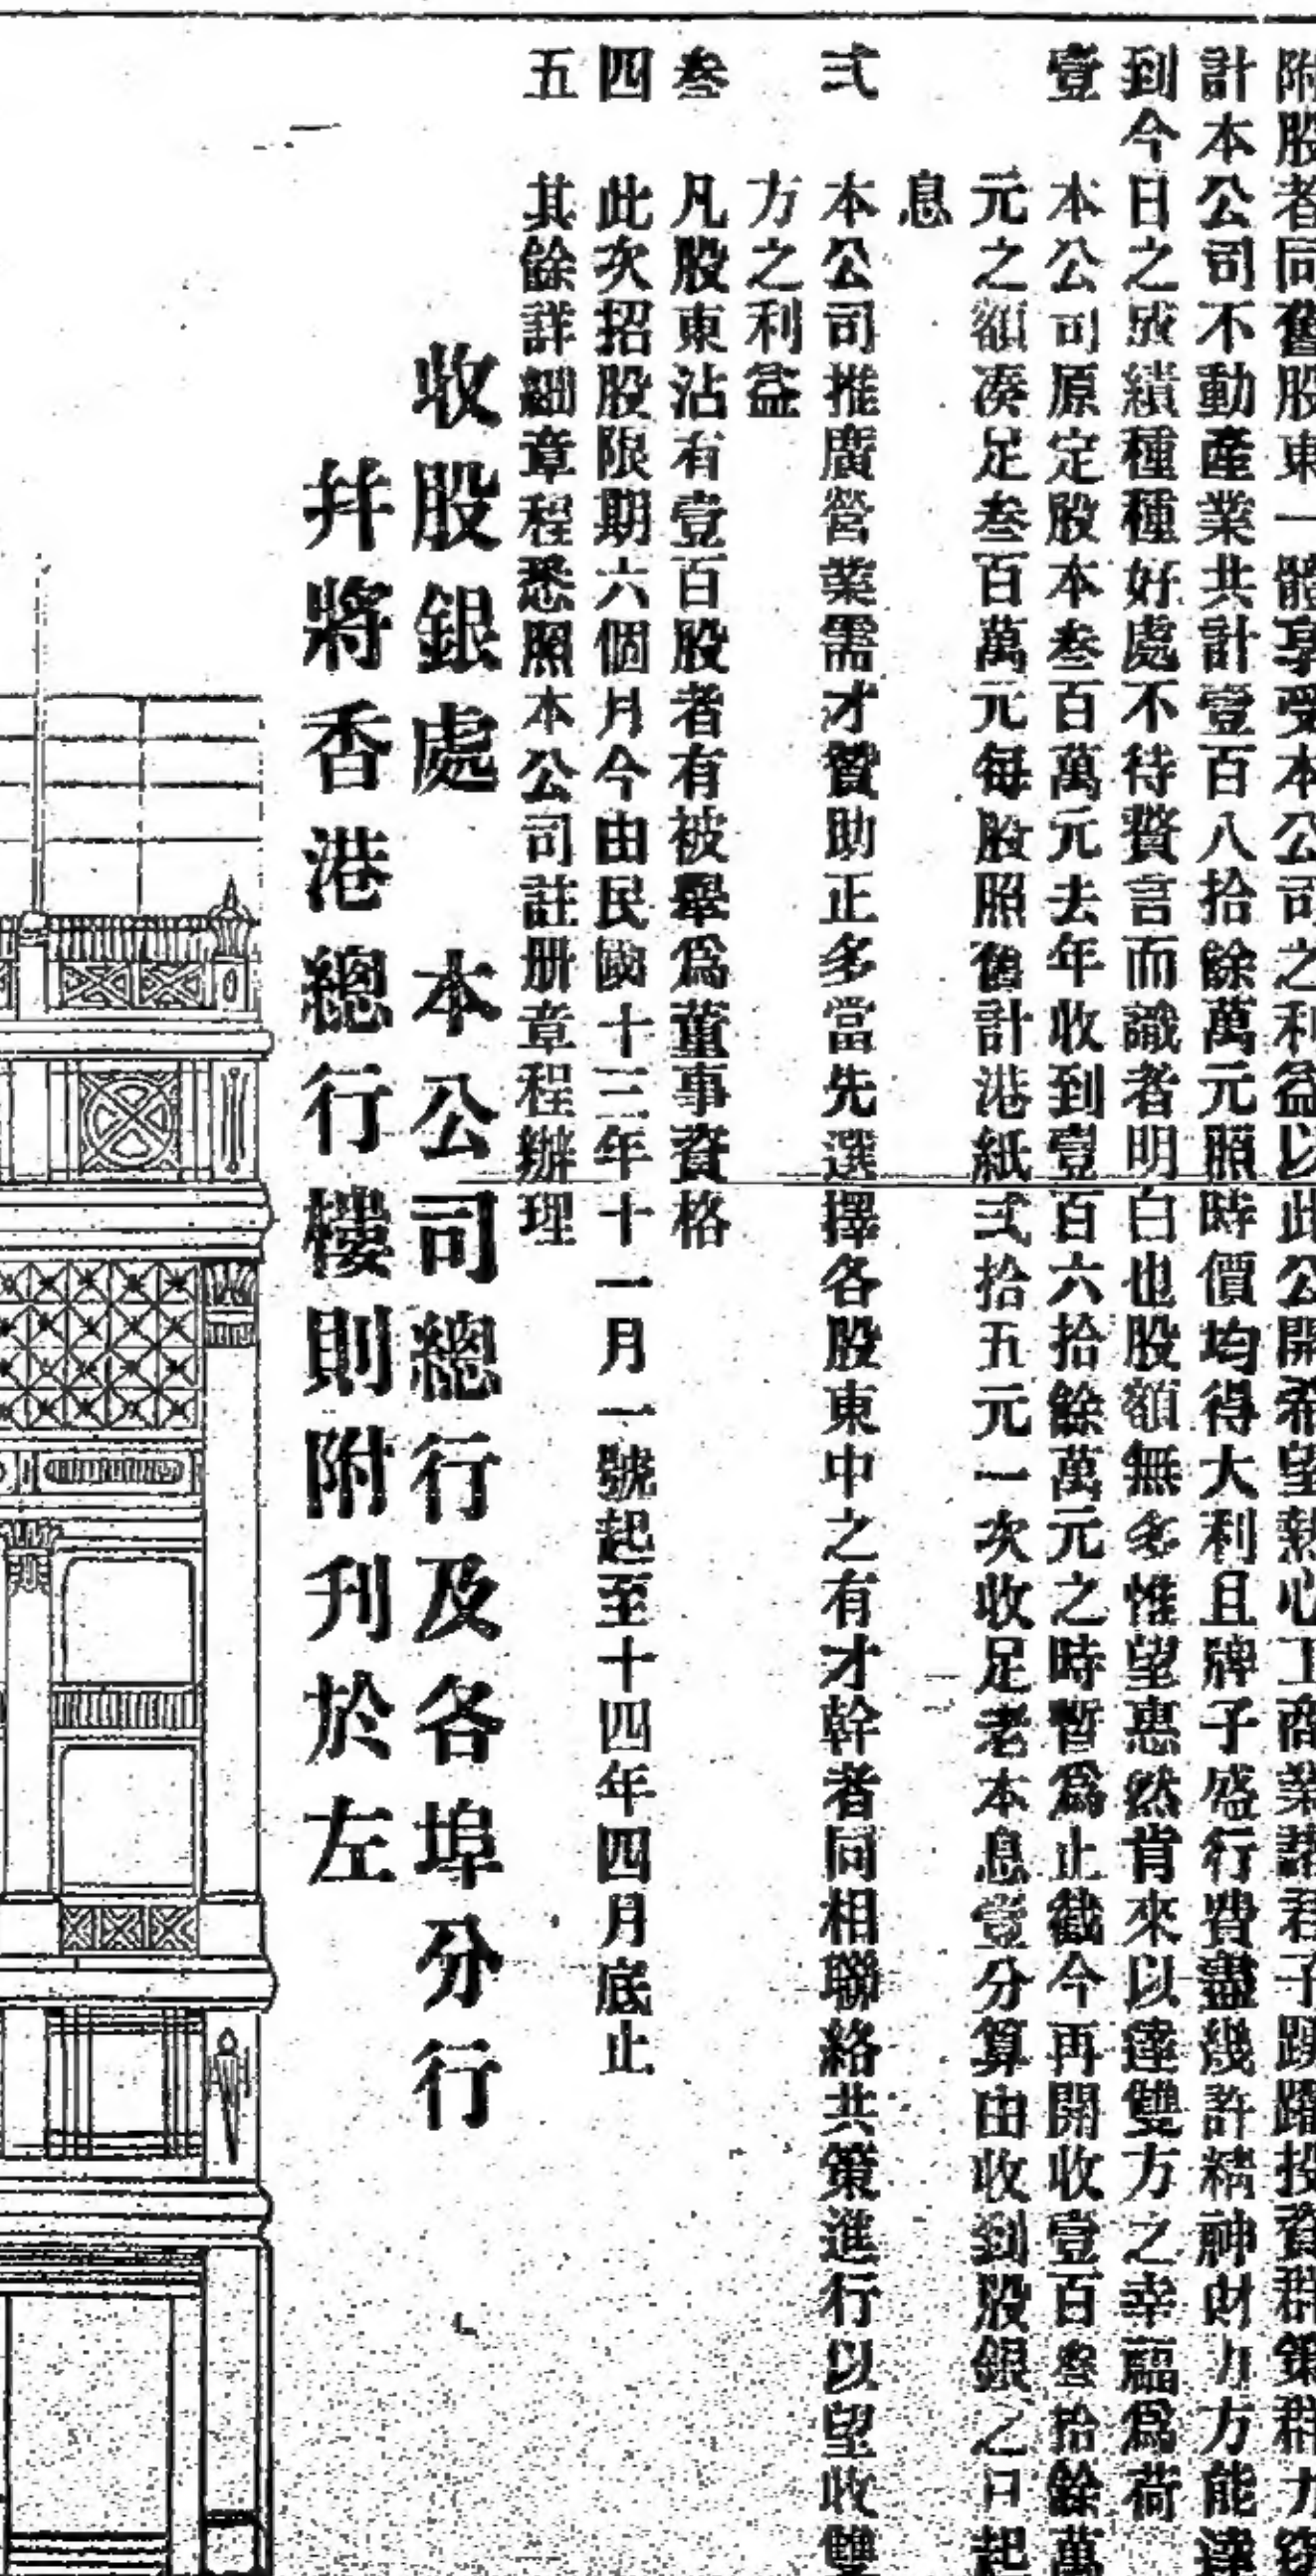 附股者同舊股東一體享受本公司之利益以此公開希望熱心工商業諸君子踴躍投資群策群力
計本公司不動產業共計壹百八拾餘萬元照時價均得大利且牌子盛行費盡幾許精神財力方能達
到今日之成績種種好處不待贅言而識者明白也股額無多惟望惠然肯來以達雙方之幸福為荷
壹 本公司原定股本叁百萬元去年收到壹百六拾餘萬元之時暫為止截今再開收壹百叁拾餘萬
元之額湊足叁百萬元每股照舊計港紙弍拾五元一次收足老本息壹分算由收到股銀之日起
息
弍 本公司推廣營業需才贊助正多當先選擇各股東中之有才幹者同相聯絡共策進行以望收雙
方之利益
叁 凡股東沾有壹百股者有被舉為董事資格
四 此次招股限期六個月今由民國十三年十一月一號起至十四年四月底止
五 其餘詳細章程悉照本公司註册章程辦理
收股銀處 本公司總行及各埠分行
幷將香港總行樓則附刊於左